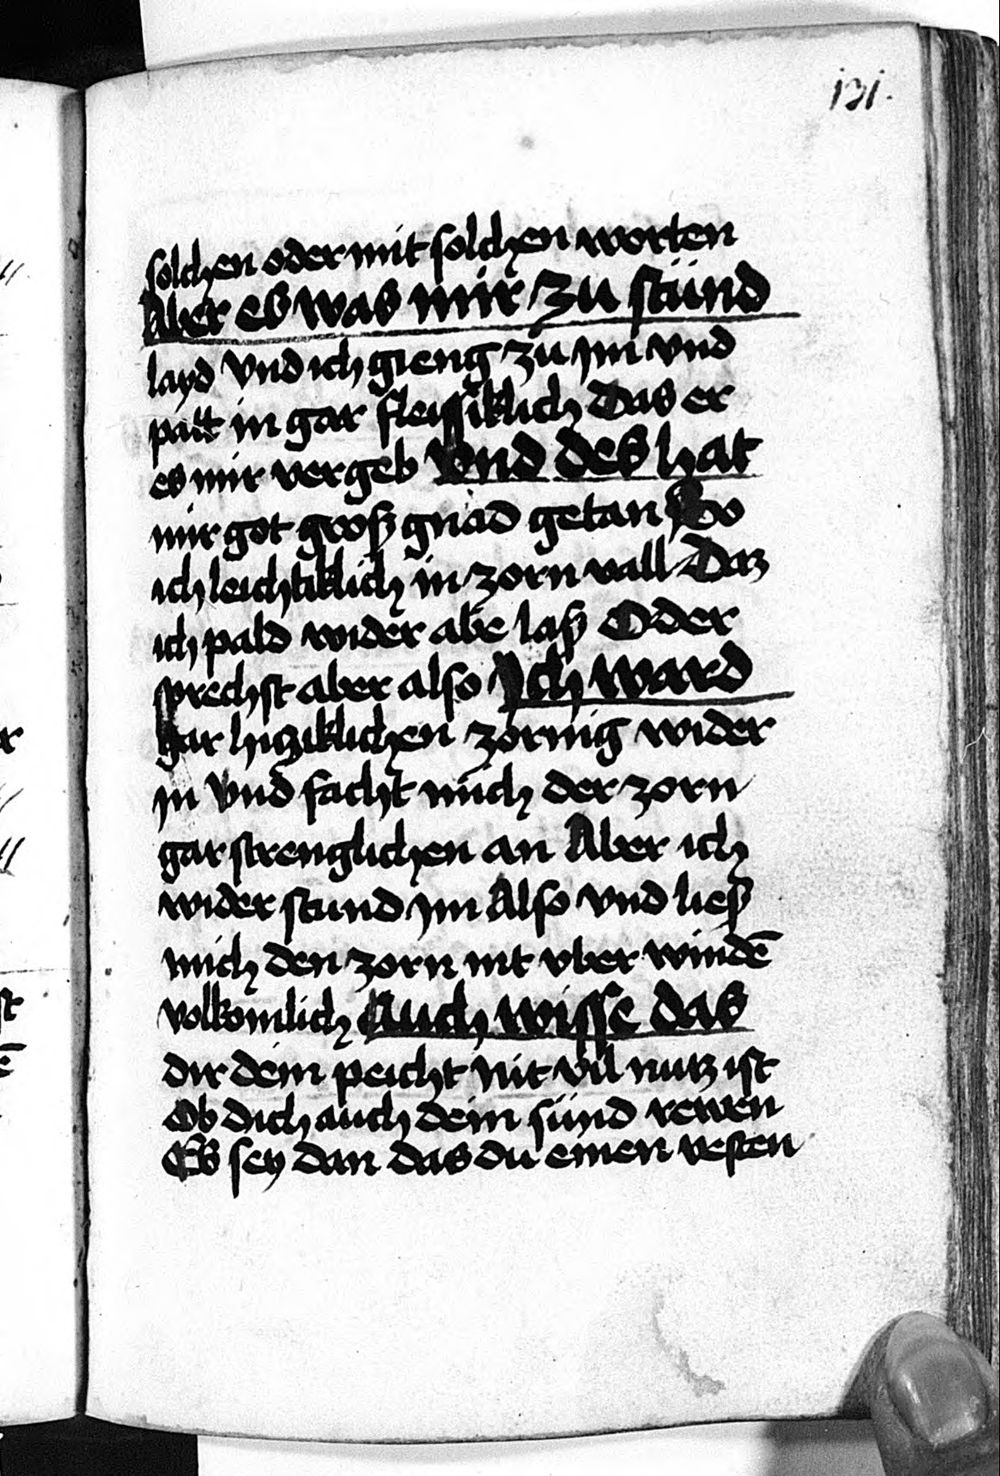 131.
solchen oder mit solchen worten
Aber es was mir zu stünd
layd vnd ich gieng zu jm vnd
patt in gar fleissiklich Das er
es mir vergeb Vnd des hat
mir got groß gnad getan So
ich leichtiklich in zorn vall Daz
ich pald wider abe laß Oder
sprechst aber also Ich ward
gar hitziklichen zornig wider
jn Vnd facht mich der zorn
gar strenglichen an Aber ich
wider stund jm Also vnd ließ
mich den zorn nit vber windē
volkomlich Auch wisse das
dir dein peicht nit vil nutz ist
Ob dich auch dein sünd rewen
Es sey dan das du einen vesten